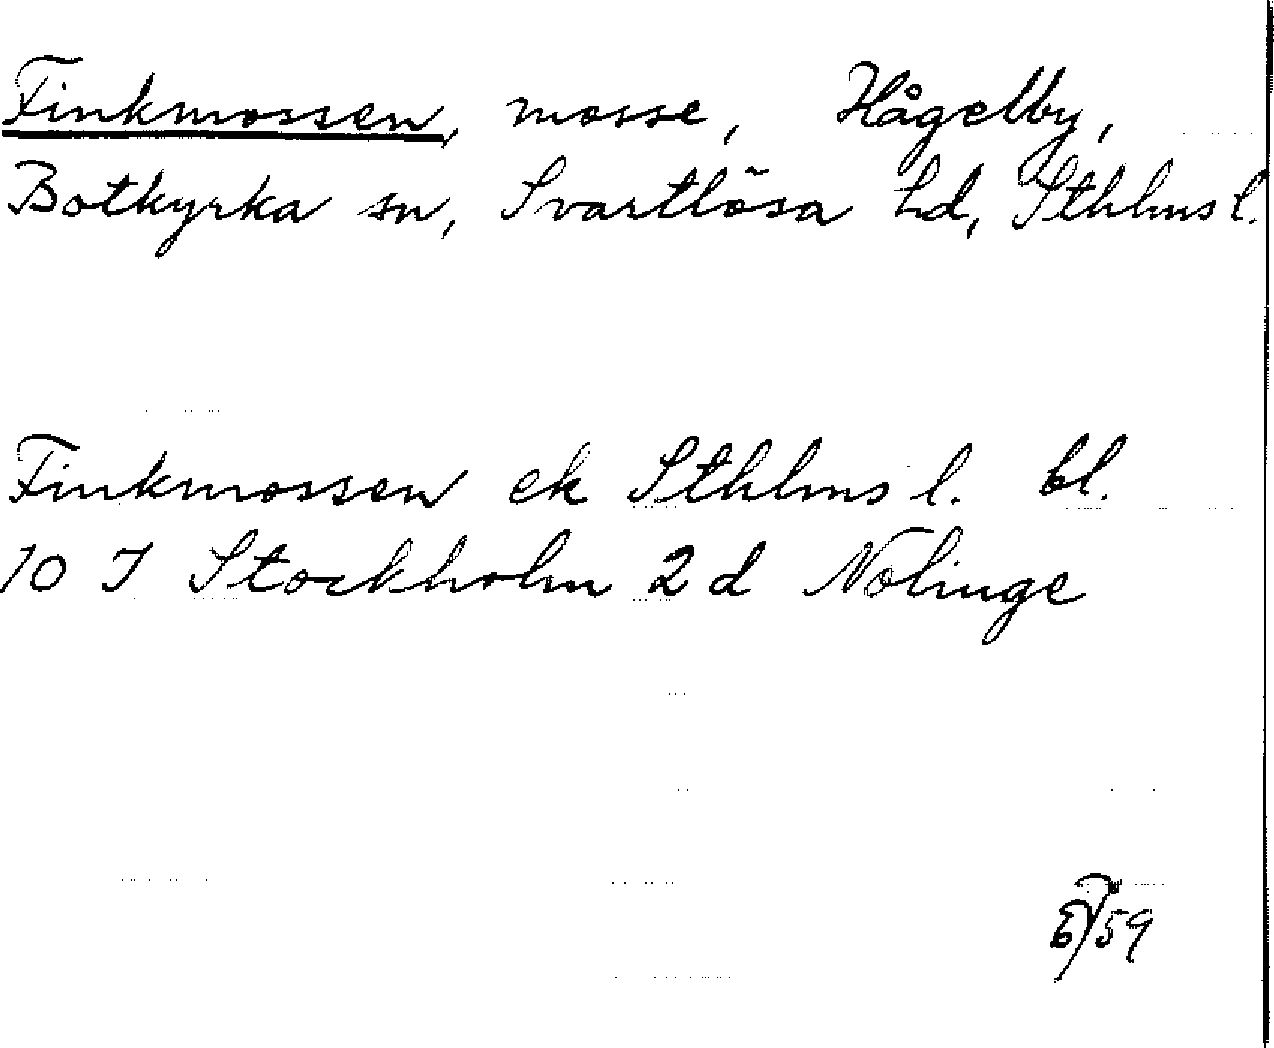 Finkmossen, mosse, Hågelby,
Botkyrka sn, Svartlösa hd, Sthlms l.
Finkmossen ek Sthlms l. bl.
10 I Stockholm 2 d Nolinge
59